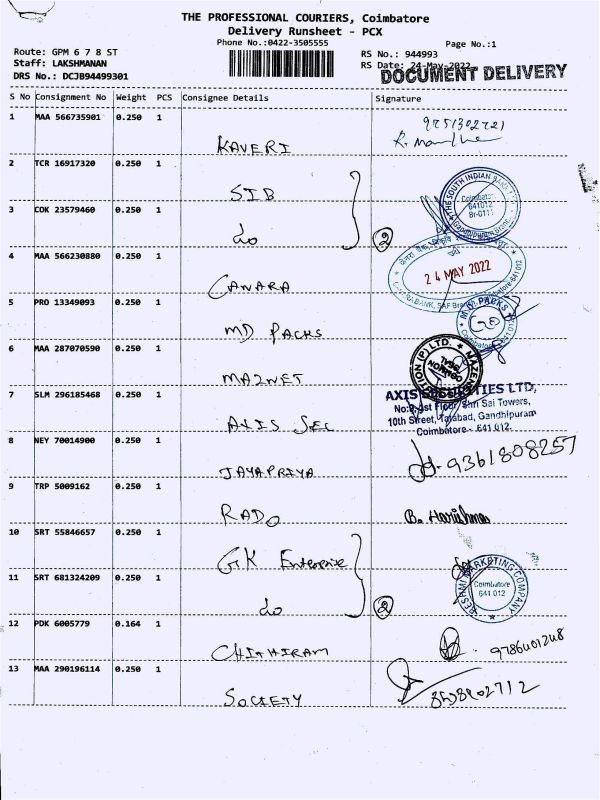 THE PROFESSIONAL COURIERS, Coimbatore
Delivery Runsheet - PCX
Phone No.:0422-3505555
Page No.:1
Route: GPM 6 7 8 ST
RS No.: 944993
Staff: LAKSHMANAN
RS Date: 24-May-2022
DRS No.: DCJB94499301
DOCUMENT DELIVERY
S No Consignment No Weight PCS Consignee Details Signature
1 MAA 566735901 0.250 1
KAVERI
2 TCR 16917320 0.250 1
SIB
THE SOUTH INDIAN
Coimbatore
641012
3 COK 23579460 0.250 1
do
2
4 MAA 566230880 0.250 1
CANARA
24 MAY 2022
5 PRO 13349093 0.250 1
MD PACKS
M D PACKS
6 MAA 287070590 0.250 1
MAZNET
7 SLM 296185468 0.250 1
AXIS SEC
AXIS SECURITIES LTD,
Shri Sai Towers,
10th Street, Tatabad, Gandhipuram
Coimbatore - 641 012.
8 NEY 70014900 0.250 1
JAYAPRIYA
9361808257
9 TRP 5009162 0.250 1
RADO
B. Harishma
10 SRT 55846657 0.250 1
GK Enterprise
11 SRT 681324209 0.250 1
do
2
MARKETING COMPANY
Coimbatore
641 012
12 PDK 6005779 0.164 1
CHITHIRAM
9786401248
13 MAA 290196114 0.250 1
SOCIETY